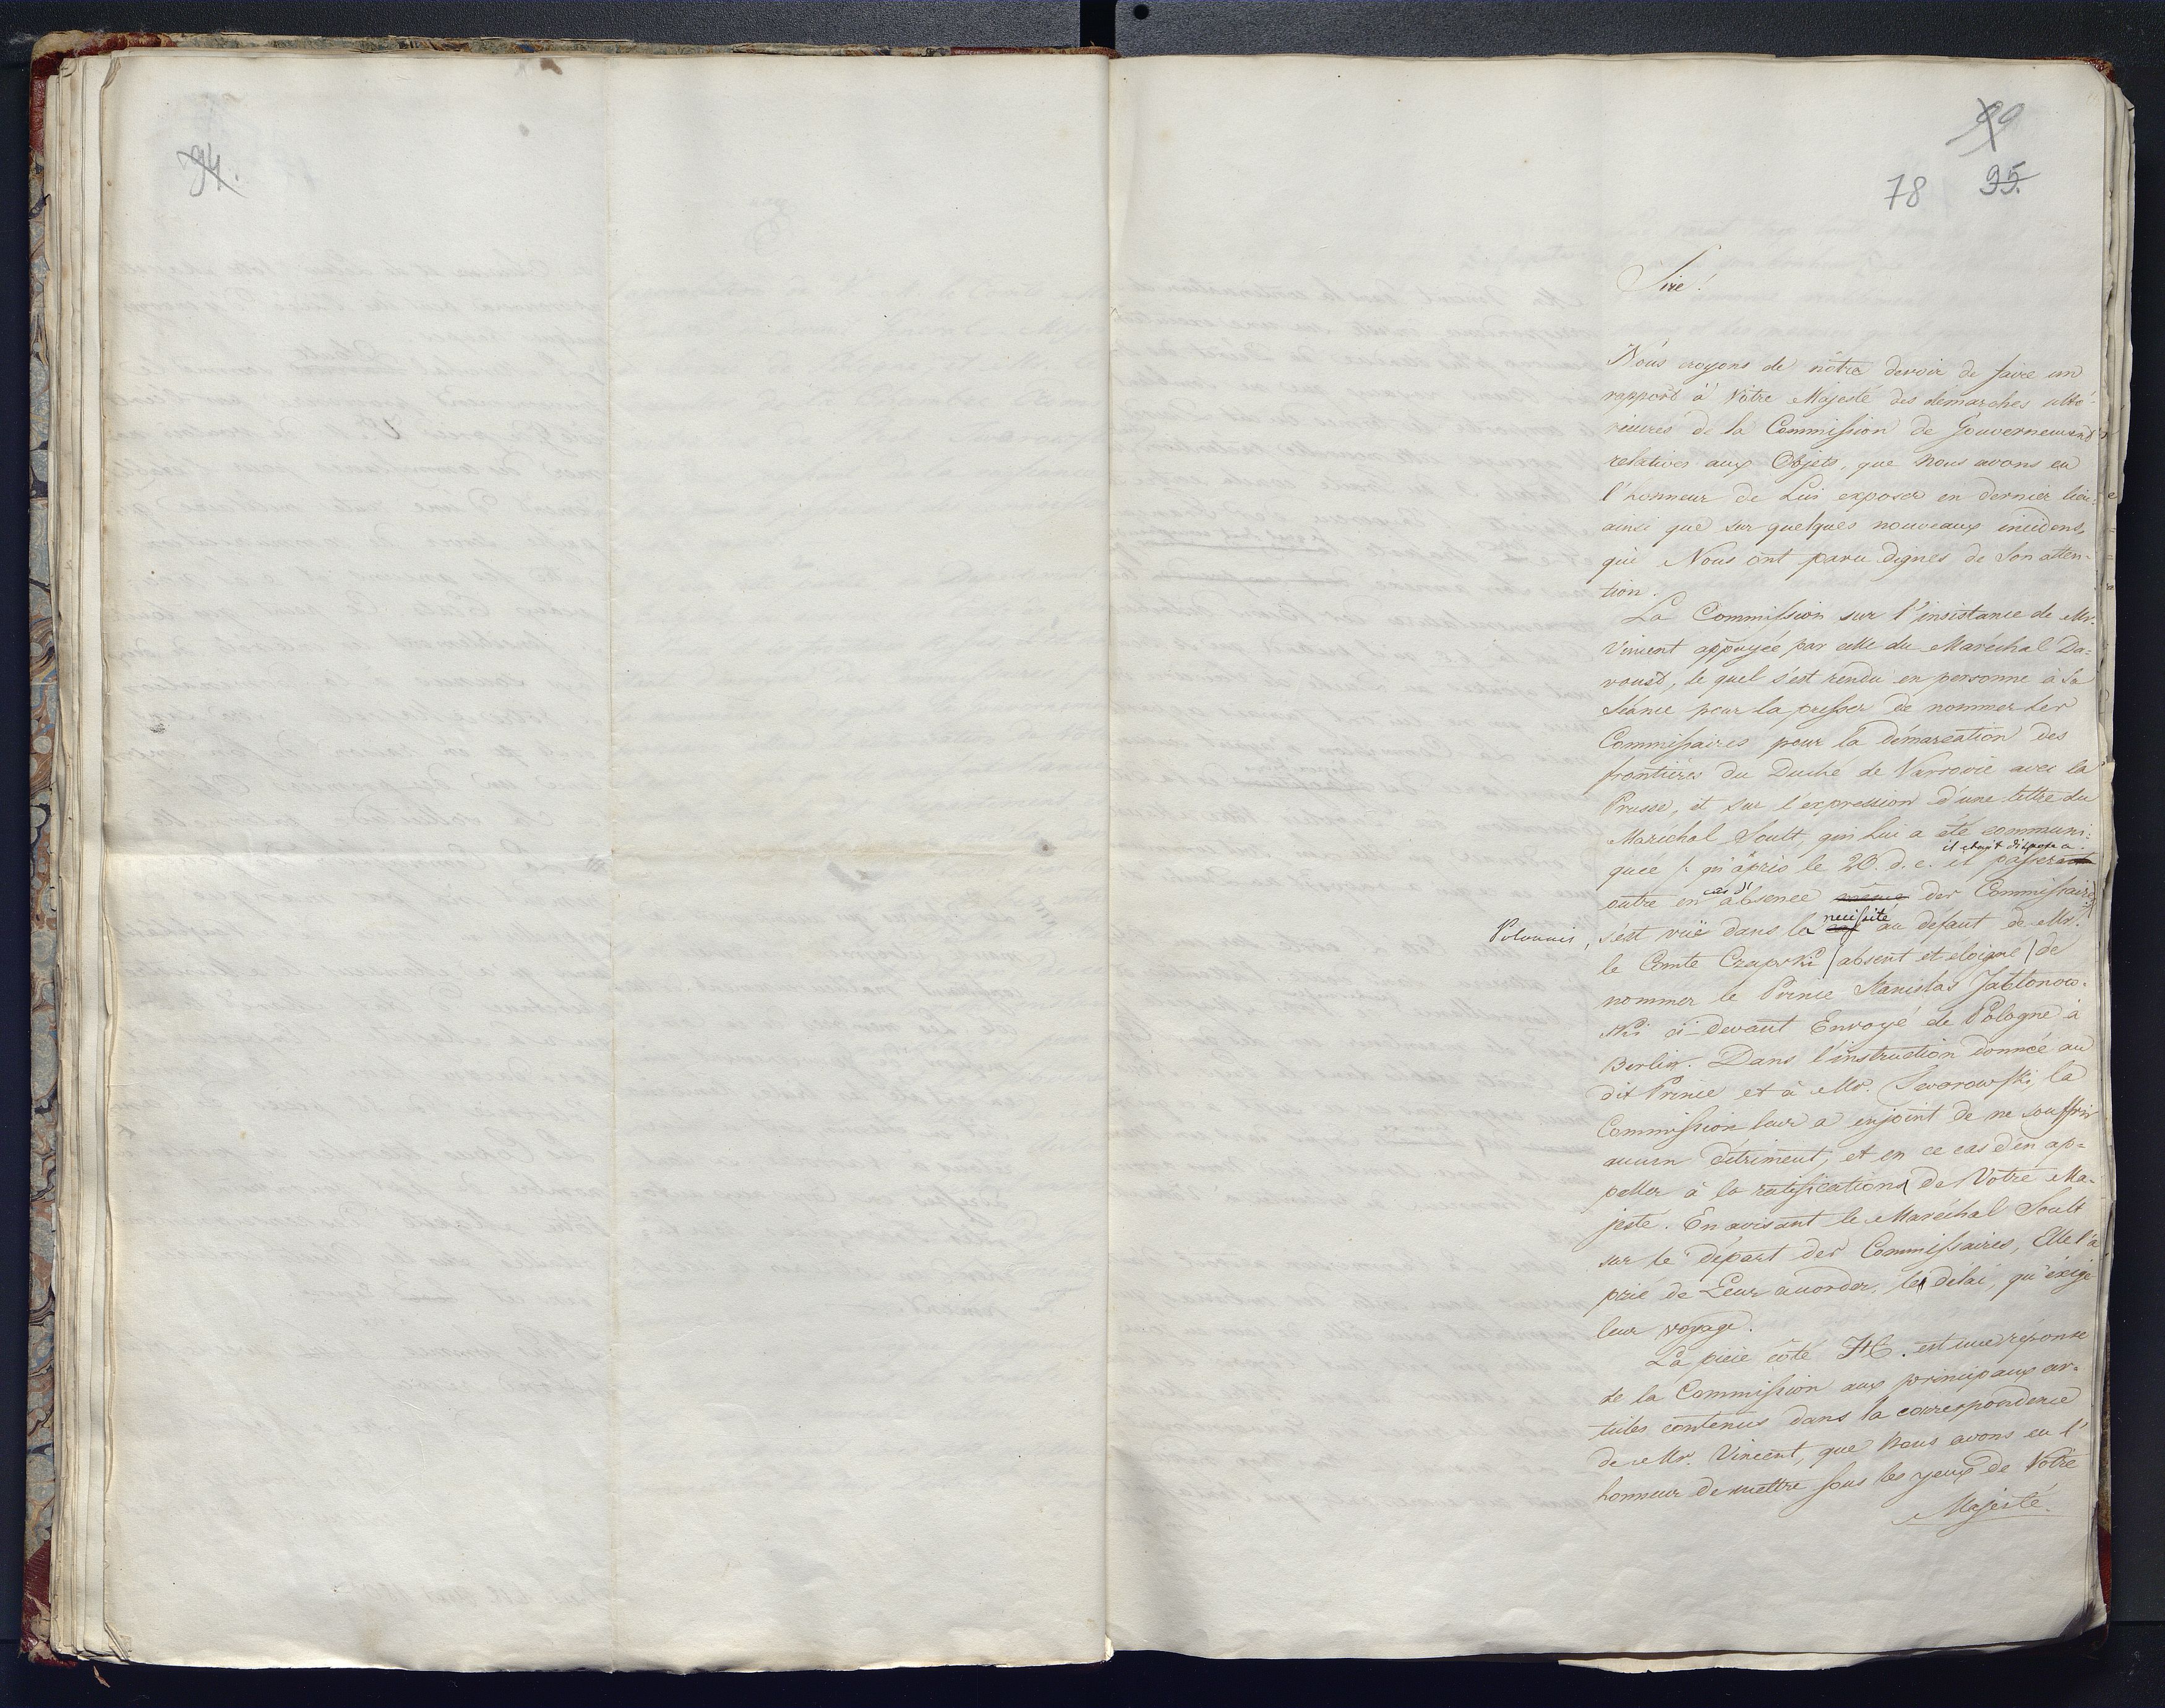 94.
90
78 95.
Sire!
Nous croyons de nôtre devoir de faire un
rapport à Vôtre Majesté des démarches ulté-
rieures de la Commission de Gouvernement
relatives aux Objets, que Nous avons eu
l'honneur de Lui exposer en dernier lieu,
ainsi que sur quelques nouveaux incidens,
qui Nous ont paru dignes de Son atten-
tion.
La Commission sur l'insistance de Mr.
Vincent appuyée par celle du Maréchal Da=
voust, le quel s'est rendu en personne à la
Séance pour la presser de nommer les
Commissaires pour la démarcation des
frontières du Duché de Varsovie avec la
Prusse, et sur l'expression d'une lettre du
Maréchal Soult, qui Lui a été communi:
il etait disposé a
quée /: qu'après le 20. d. c. il passerait
cas d'
outre en absence même des Commissaires
necessité
Polonais, s'est vüe dans le cas au defaut de Mr.
le Comte Czapski /absent et eloigné/ de
nommer le Prince Stanislas Jablonow-
ski ci-devant Envoyé de Pologne à
Berlin. Dans l'instruction donnée au
dit Prince et à Mr. Sworowski, la
Commission leur a enjoint de ne souffrir
aucun détriment, et en ce cas d'en ap=
peller à la ratification de Votre Ma-
jesté. En avisant le Maréchal Soult
sur le départ des Commissaires, Elle l'a
prié de Leur accorder le délai, qu'exige
leur voyage.
La pièce coté est une réponse
de la Commission aux principaux ar-
ticles contenus dans la correspondence
de Mr. Vincent, que Nous avons eu l'
honneur de mettre sous les yeux de Votre
Majesté.